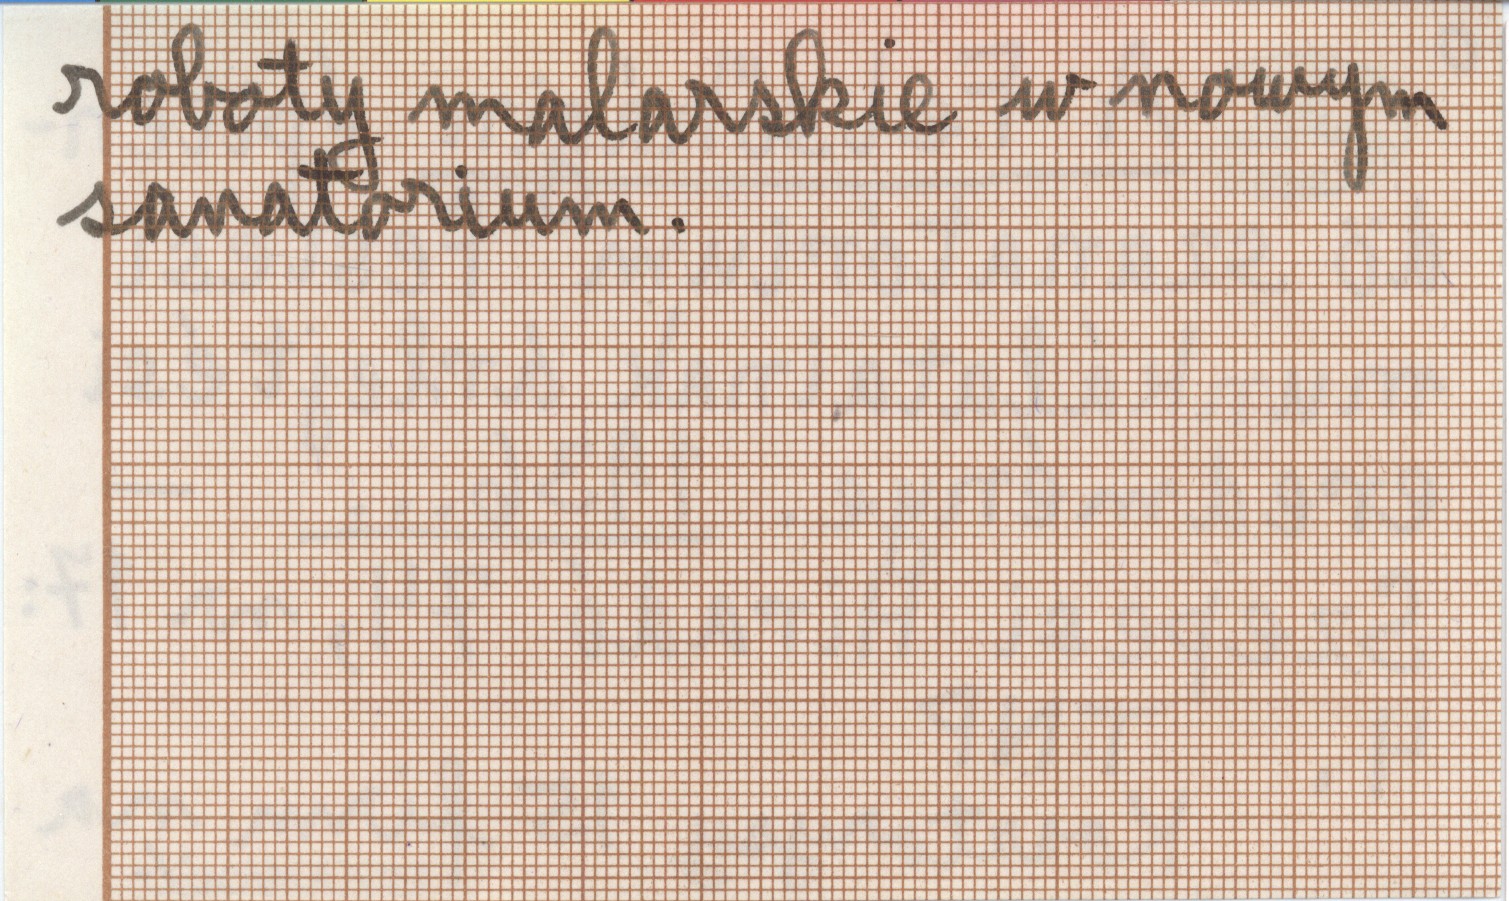 roboty malarskie w nowym
sanatorium.